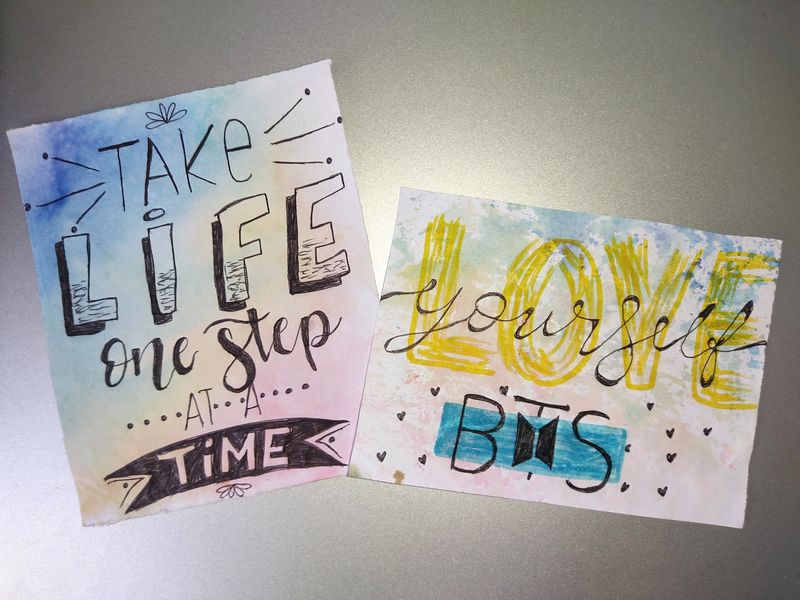 TAKE
LIFE
one step
AT A
TiME
LOVE
yourself
BTS